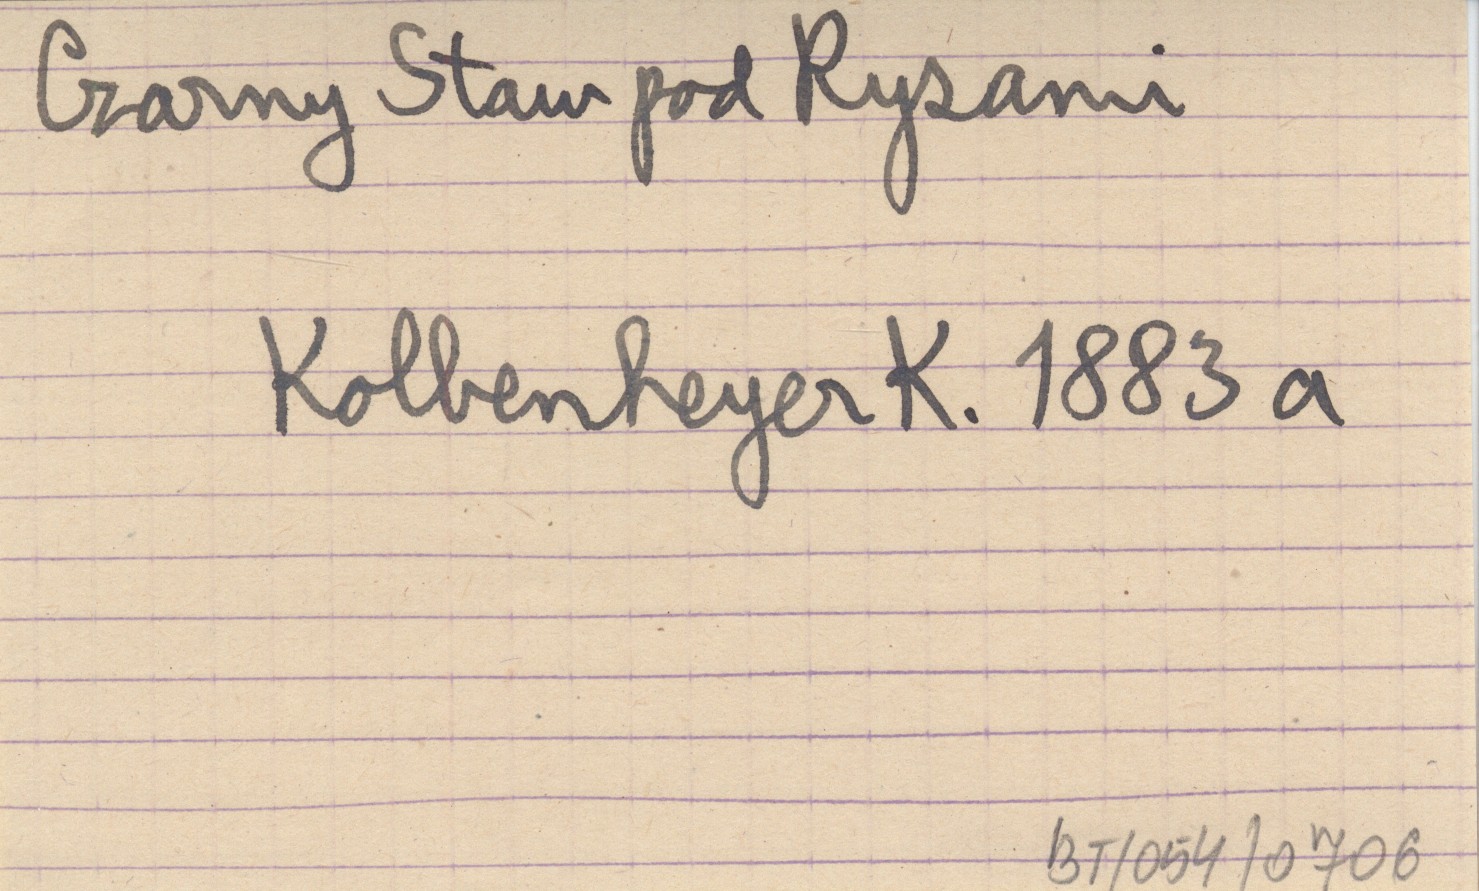 Czarny Staw pod Rysami
Kolbenheyer K. 1883 a
BT/054/0706